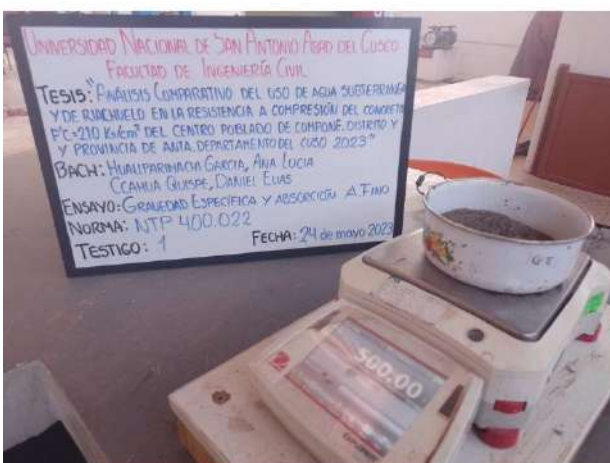 UNIVERSIDAD NACIONAL DE SAN ANTONIO ABAD DEL CUSCO
FACULTAD DE INGENIERÍA CIVIL
TESIS: "ANÁLISIS COMPARATIVO DEL USO DE AGUA SUBTERRANEA
Y DE RIACHUELO EN LA RESISTENCIA A COMPRESIÓN DEL CONCRETO
F'C=210 KG/CM² DEL CENTRO POBLADO DE COMPONE, DISTRITO Y
Y PROVINCIA DE ANTA, DEPARTAMENTO DEL CUSO 2023"
BACH: HUALLPARIMACHI GARCIA, ANA LUCIA
CCAHUA QUISPE, DANIEL ELIAS
ENSAYO: GRAVEDAD ESPECÍFICA Y ABSORCIÓN A. FINO
NORMA: NTP 400.022
TESTIGO: 1
FECHA: 24 de mayo 2023
500.00